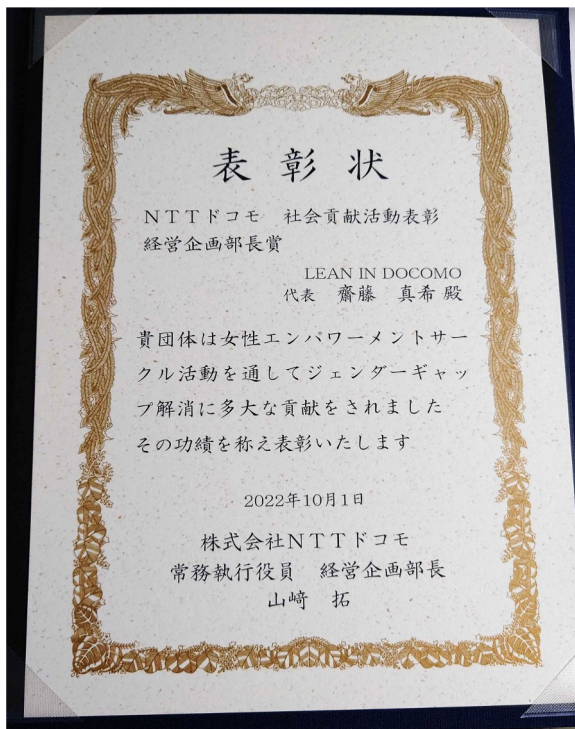 表彰状
NTTドコモ 社会貢献活動表彰
経営企画部長賞
LEAN IN DOCOMO
代表 齋藤 真希 殿
貴団体は女性エンパワーメントサー
クル活動を通してジェンダーギャッ
プ解消に多大な貢献をされました
その功績を称え表彰いたします
2022年10月1日
株式会社NTTドコモ
常務執行役員 経営企画部長
山﨑 拓